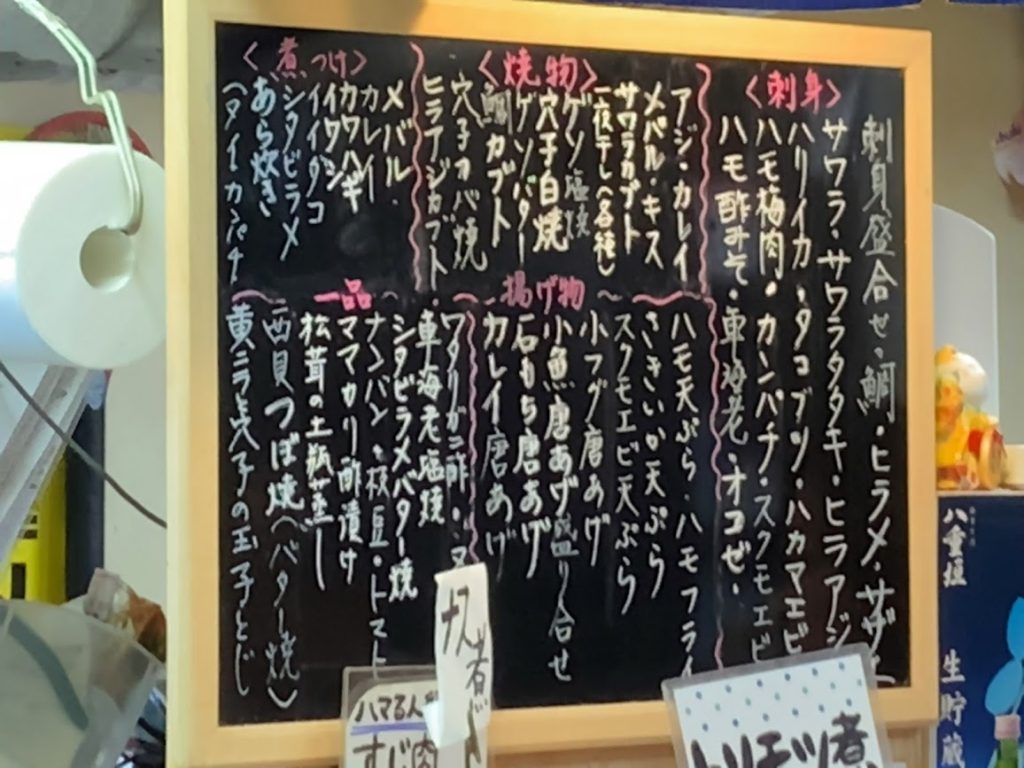 〈刺身〉
刺身盛合せ・鯛・ヒラメ・サザエ
サワラ・サワラタタキ・ヒラアジ
ハリイカ・タコブツ・ハカマエビ
ハモ梅肉・カンパチ・スクモエビ
ハモ酢みそ・車海老・オコゼ・
〈焼物〉
アジ・カレイ
メバル・キス
サワラカブト
一夜干し(各種)
ゲソ塩焼
穴子白焼
ゲソバター
鯛カブト
穴子オバ焼
ヒラアジカブト
〈煮つけ〉
メバル
カレイ
カワハギ
イワシ
イイダコ
シタビラメ
あら炊き
(タイカンパチ
揚げ物
ハモ天ぷら・ハモフライ
さきいか天ぷら
スクモエビ天ぷら
小フグ唐あげ
小魚唐あげ盛り合せ
石もち唐あげ
カレイ唐あげ
一品
ワタリガニ酢・
車海老塩焼
シタビラメバター焼
ナンバン・枝豆・トマト
ママカリ酢漬け
松茸の土瓶蒸し
貝つぼ焼(バター焼)
黄ニラと穴子の玉子とじ
煮
すじ肉
煮
八重垣
生貯蔵